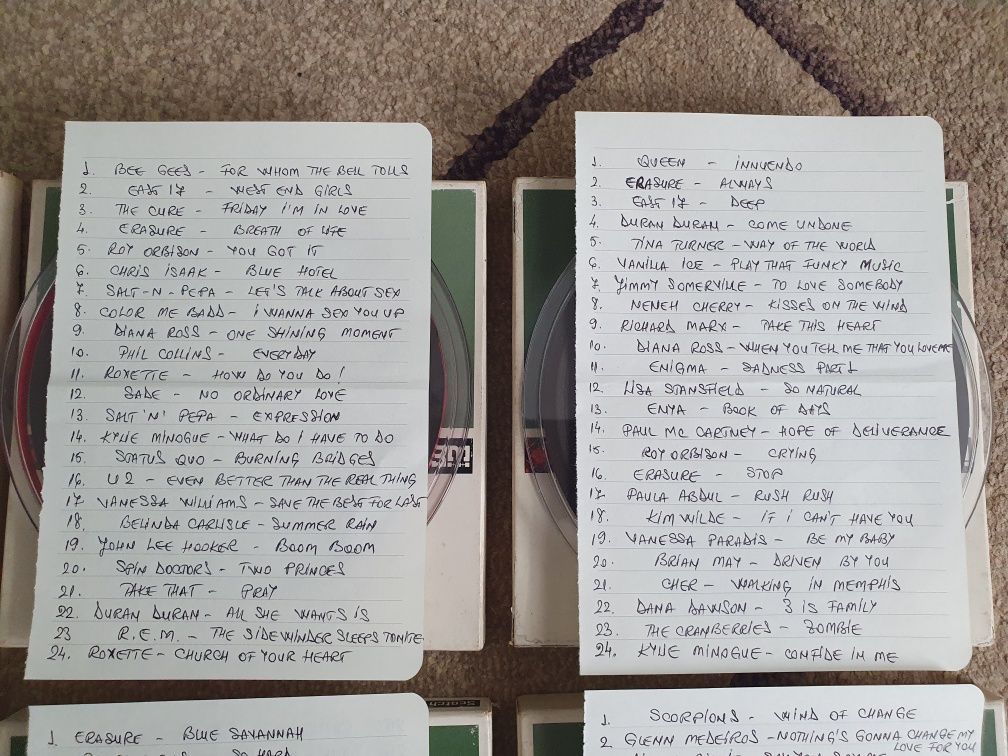 1. BEE GEES - FOR WHOM THE BELL TOLLS
2. EAST 17 - WEST END GIRLS
3. THE CURE - FRIDAY I'M IN LOVE
4. ERASURE - BREATH OF LIFE
5. ROY ORBISON - YOU GOT IT
6. CHRIS ISAAK - BLUE HOTEL
7. SALT-N-PEPA - LET'S TALK ABOUT SEX
8. COLOR ME BADD - I WANNA SEX YOU UP
9. DIANA ROSS - ONE SHINING MOMENT
10. PHIL COLLINS - EVERYDAY
11. ROXETTE - HOW DO YOU DO!
12. SADE - NO ORDINARY LOVE
13. SALT 'N' PEPA - EXPRESSION
14. KYLIE MINOGUE - WHAT DO I HAVE TO DO
15. STATUS QUO - BURNING BRIDGES
16. U2 - EVEN BETTER THAN THE REAL THING
17. VANESSA WILLIAMS - SAVE THE BEST FOR LAST
18. BELINDA CARLISLE - SUMMER RAIN
19. JOHN LEE HOOKER - BOOM BOOM
20. SPIN DOCTORS - TWO PRINCES
21. TAKE THAT - PRAY
22. DURAN DURAN - ALL SHE WANTS IS
23 R.E.M. - THE SIDEWINDER SLEEPS TONITE
24. ROXETTE - CHURCH OF YOUR HEART
3M
1. QUEEN - INNUENDO
2. ERASURE - ALWAYS
3. EAST 17 - DEEP
4. DURAN DURAN - COME UNDONE
5. TINA TURNER - WAY OF THE WORLD
6. VANILLA ICE - PLAY THAT FUNKY MUSIC
7. JIMMY SOMERVILLE - TO LOVE SOMEBODY
8. NENEH CHERRY - KISSES ON THE WIND
9. RICHARD MARX - TAKE THIS HEART
10. DIANA ROSS - WHEN YOU TELL ME THAT YOU LOVE ME
11. ENIGMA - SADNESS PART 1
12. LISA STANSFIELD - SO NATURAL
13. ENYA - BOOK OF DAYS
14. PAUL MC CARTNEY - HOPE OF DELIVERANCE
15. ROY ORBISON - CRYING
16. ERASURE - STOP
17. PAULA ABDUL - RUSH RUSH
18. KIM WILDE - IF I CAN'T HAVE YOU
19. VANESSA PARADIS - BE MY BABY
20. BRIAN MAY - DRIVEN BY YOU
21. CHER - WALKING IN MEMPHIS
22. DANA DAWSON - 3 IS FAMILY
23. THE CRANBERRIES - ZOMBIE
24. KYLIE MINOGUE - CONFIDE IN ME
Scotch
1. ERASURE - BLUE SAVANNAH
1. SCORPIONS - WIND OF CHANGE
2. GLENN MEDEIROS - NOTHING'S GONNA CHANGE MY
LOVE FOR YOU